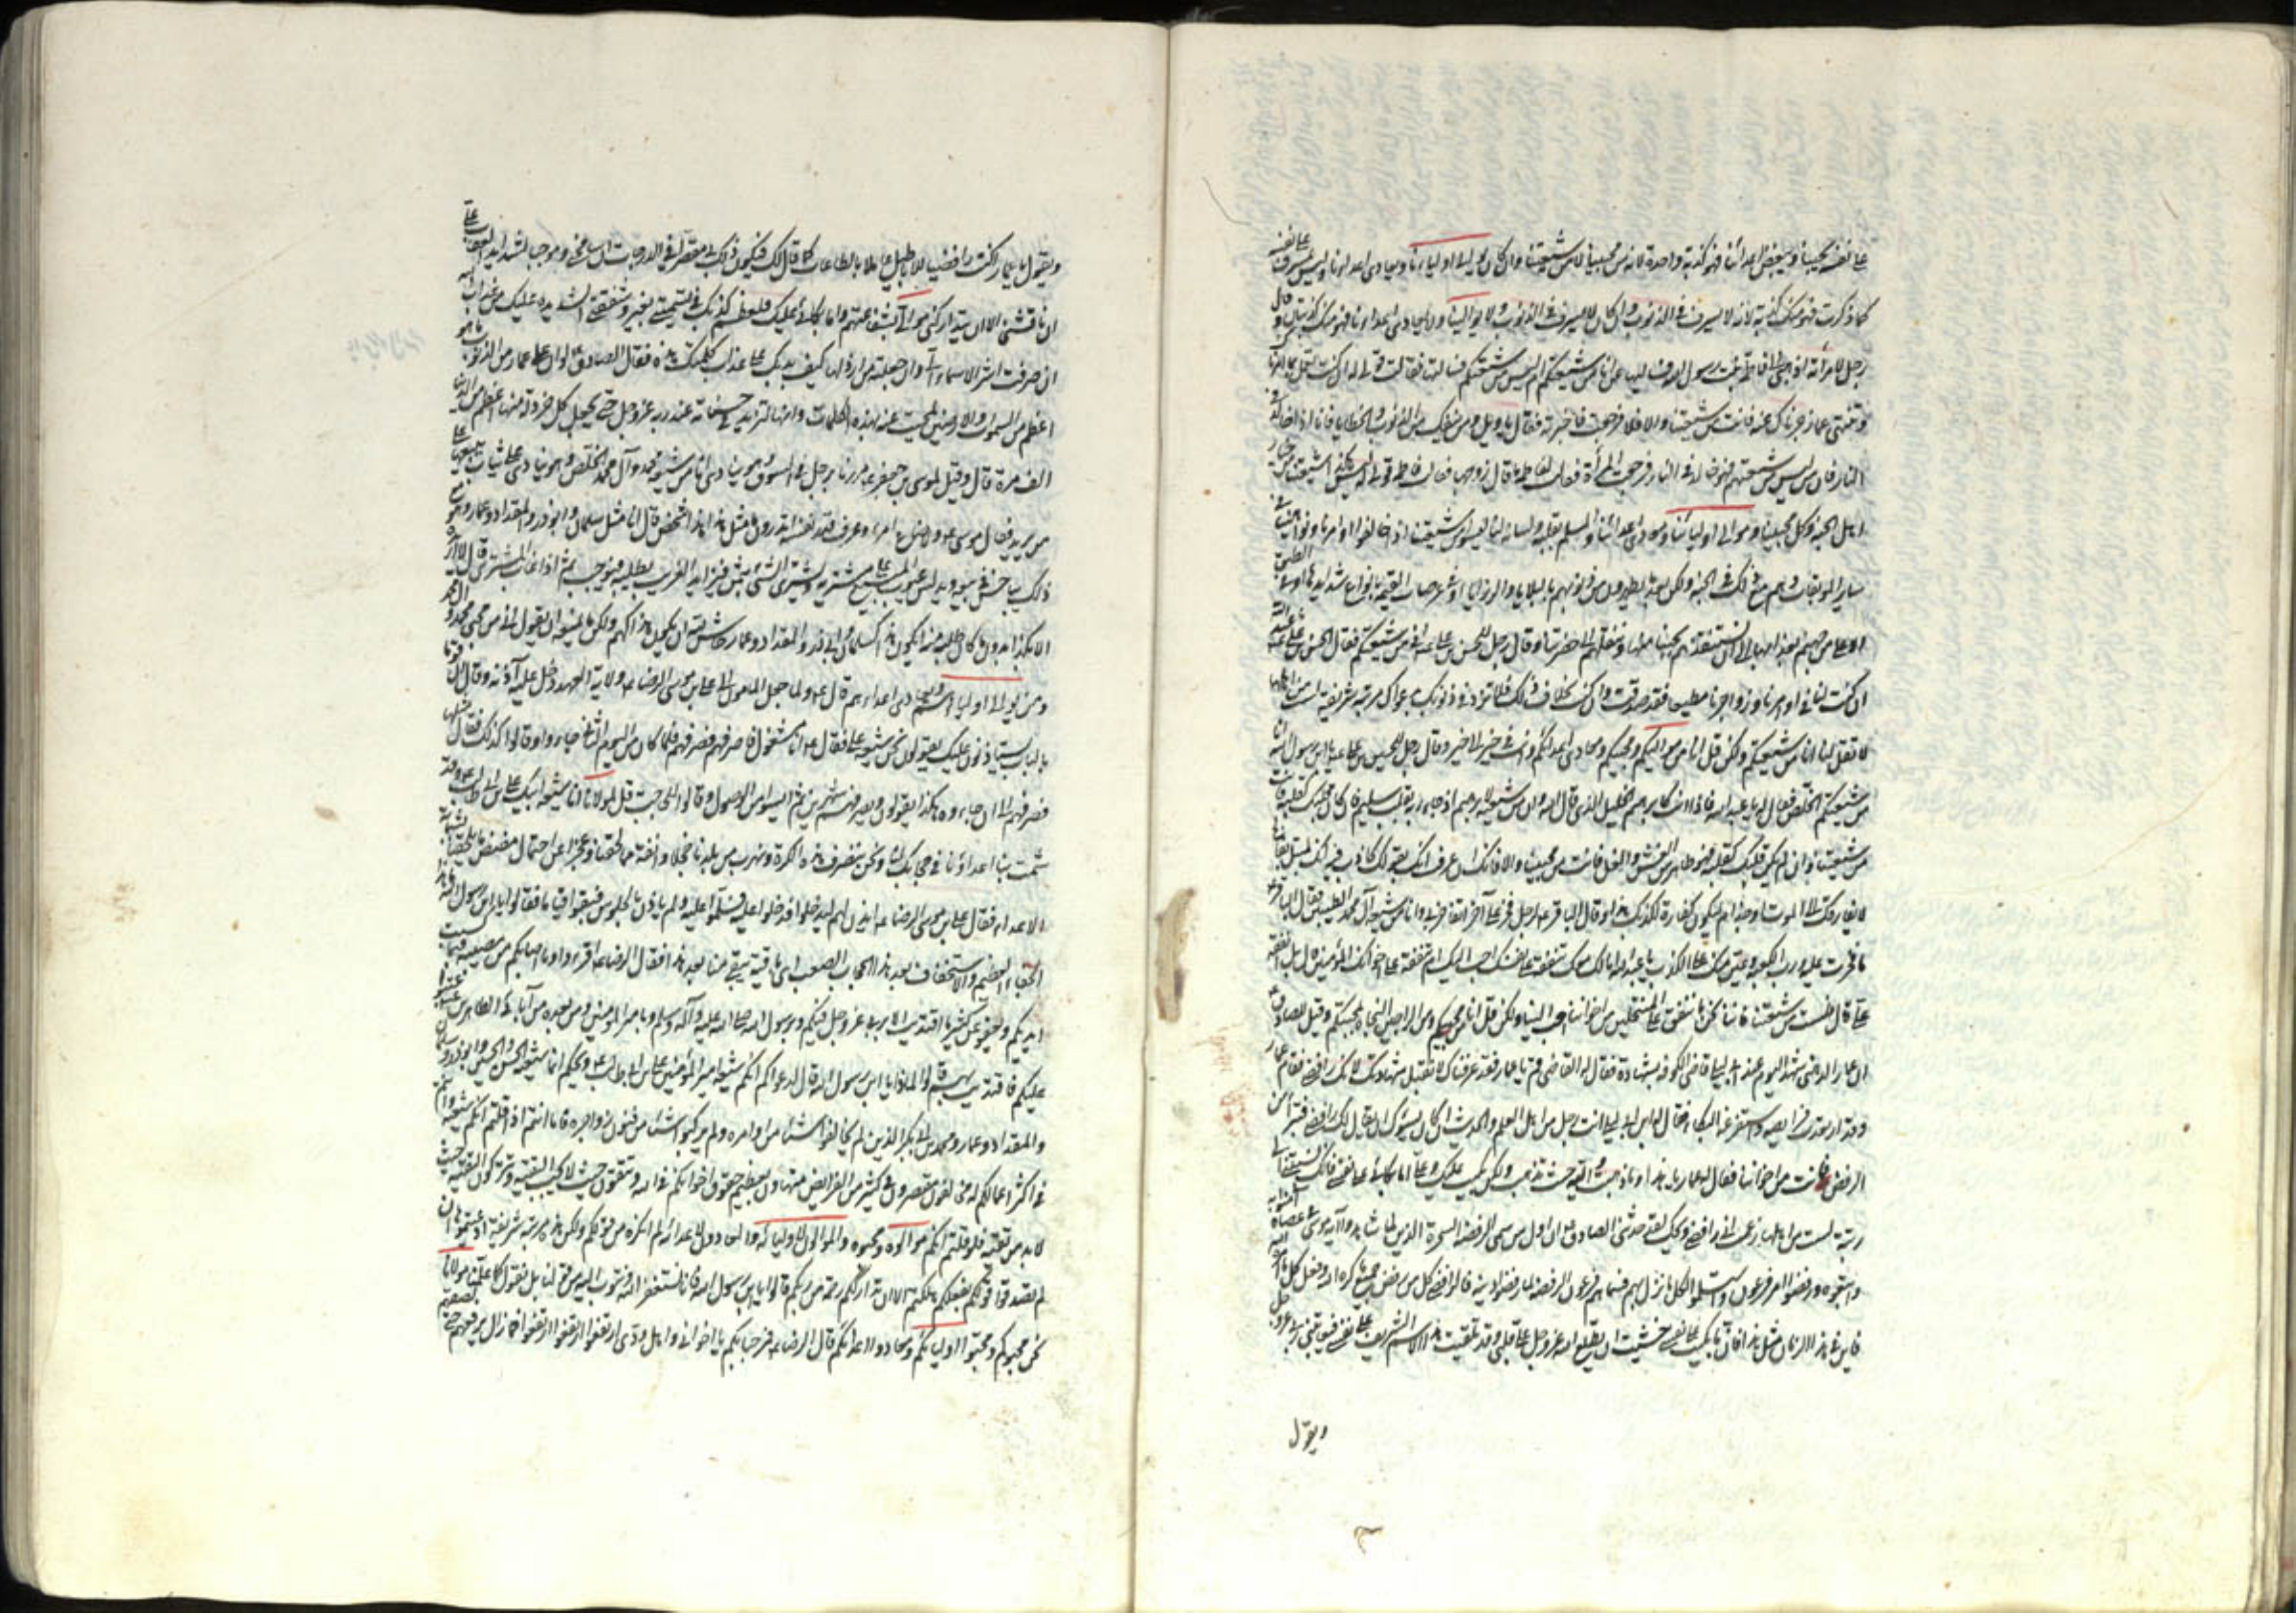 على نفسه بمحبينا ويبغض اعدائنا فهو كذبة واحدة لانه من محبينا لا من شيعتنا وان كان يوالى اولياءنا ويعادى اعداءنا وليس بمسرف على نفسه
كما ذكرت فهو منك كذبة لانه لا يسرف فى الذنوب وان كان لا يسرف فى الذنوب ولا يوالينا ولا يعادى اعداءنا فهو منك كذبتان وقال
رجل لامرأته اذهبى الى فاطمة بنت رسول الله فسليها عنى انا من شيعتكم ام لست من شيعتكم فسالتها فقالت قولى له ان كنت تعمل بما امرناك
وتنتهى عما زجرناك عنه فانت من شيعتنا والا فلا فرجعت فاخبرته فقال يا ويلى ومن ينفك من الذنوب والخطايا فانا اذا خالد فى
النار فان من ليس من شيعتهم فهو خالد فى النار فرجعت المرأة فقالت لفاطمة ما قال زوجها فقالت فاطمة قولى له ليس هكذا شيعتنا من خيار
اهل الجنة وكل محبينا وموالى اوليائنا ومعادى اعدائنا والمسلم بقلبه ولسانه لنا ليسوا من شيعتنا اذا خالفوا اوامرنا ونواهينا فى
ساير الموبقات وهم مع ذلك فى الجنة ولكن بعد ما يطهرون من ذنوبهم بالبلايا والرزايا او فى عرصات القيمة بانواع شدايدها او فى الطبق
الاعلى من جهنم بعذابها الى ان نستنقذهم بحبنا منها وننقلهم الى حضرتنا وقال رجل للحسن بن على انى من شيعتكم فقال الحسن بن على يا عبد الله
ان كنت لنا فى اوامرنا وزواجرنا مطيعا فقد صدقت وان كنت بخلاف ذلك فلا تزد فى ذنوبك بدعواك مرتبة شريفة لست من اهلها
لا تقل لنا انا من شيعتكم ولكن قل انا من مواليكم ومحبيكم ومعادى اعدائكم وانت فى خير الى خير وقال رجل لعلى بن الحسين يا ابن رسول الله انا
من شيعتكم الخلص فقال له يا عبد الله فاذا انت كابراهيم الخليل الذى قال الله وان من شيعته لابراهيم اذ جاء ربه بقلب سليم فان كان قلبك كقلبه فانت
من شيعتنا وان لم يكن قلبك كقلبه وهو طاهر من الغش والغل فانت من محبينا والا فانك ان عرفت انك بقولك كاذب فيه انك لمبتلى بفالج
لا يفارقك الى الموت او جذام ليكون كفارة لكذبك هذا وقال الباقر لرجل فخر على آخر اتفاخرنى وانا من شيعة آل محمد الطيبين فقال الباقر
ما فخرت عليه ورب الكعبة وغبن منك على الكذب يا عبد الله امالك معك تنفقه على نفسك احب اليك ام تنفقه على اخوانك المؤمنين قال بل انفقه
على قال فلست من شيعتنا فاننا نحن ما ننفق على المنتحلين من اخواننا احب الينا ولكن قل انا من محبيكم ومن الراجين النجاة بمحبتكم وقيل للصادق
ان عمارا الدهنى شهد اليوم عند ابى ليلى قاضى الكوفة بشهادة فقال له القاضى قم يا عمار فقد عرفناك لا تقبل شهادتك لانك رافضى فقام عمار
وقد ارتعدت فرايصه واستفرغه البكاء فقال له ابن ابى ليلى انت رجل من اهل العلم والحديث ان كان يسوءك ان يقال لك رافضى فتبرأ من
الرفض فانت من اخواننا فقال له عمار يا هذا ما ذهبت والله حيث ذهبت ولكن بكيت عليك وعلى اما بكائى على نفسى فانك نسبتنى الى
رتبة شريفة لست من اهلها زعمت انى رافضى ويحك لقد حدثنى الصادق ان اول من سمى الرفضة السحرة الذين لما شاهدوا آية موسى فى عصاه آمنوا به
واتبعوه ورفضوا امر فرعون واستسلموا لكل ما نزل بهم فسماهم فرعون الرافضة لما رفضوا دينه فالرافضى كل من رفض جميع ما كره الله وفعل كل ما امر الله
فاين فى هذا الزمان مثل هذا فانما بكيت على نفسى خشيت ان يطلع الله عز وجل على قلبى وقد تلقبت هذا الاسم الشريف على نفسى فيعاتبنى ربى عز وجل
ويقول
ويقول يا عمار اكنت رافضيا للاباطيل عاملا بالطاعات كما قال لك فيكون ذلك بى مقصرا فى الدرجات ان سامحنى وموجبا لشديد العقاب على
ان ناقشنى الا ان يتداركنى موالى بشفاعتهم واما بكائى عليك فلعظم كذبك فى تسميتى بغير اسمى وشفقتى الشديدة عليك من عذاب الله
ان صرفت اشرف الاسماء الى ان جعلته من ارذلها كيف يصبر بدنك على عذاب كلمتك هذه فقال الصادق لو ان على عمار من الذنوب ما هو
اعظم من السموات والارضين لمحيت عنه بهذه الكلمات وانها لتزيد فى حسناته عند ربه عز وجل حتى يجعل كل خردلة منها اعظم من الدنيا
الف مرة قال وقيل لموسى بن جعفر مررنا برجل فى السوق وهو ينادى انا من شيعة محمد وآل محمد الخلص وهو ينادى على ثياب يبيعها على
من يزيد فقال موسى ما جهل ولا ضاع امرء عرف قدر نفسه اتدرون ما مثل هذا هذا شخص قال انا مثل سلمان وابو ذر والمقداد وعمار وهو مع
ذلك يباخس فى بيعه ويدلس عيوب المبيع على مشتريه ويشترى الشئ بثمن فيزايد الغريب يطلبه فيوجب له ثم اذا غاب المشترى قال لا اريده
الا بكذا بدون ما كان طلبه منه ايكون هذا كسلمان وابى ذر والمقداد وعمار حاش لله ان يكون هذا كهم ولكن ما يمنعه ان يقول انى من محبى محمد وآل محمد
ومن يوالى اولياءهم ويعادى اعداءهم قال ولما جعل المامون الى على بن موسى الرضا ولاية العهد دخل عليه آذنه وقال ان قوما
بالباب يستاذنون عليك يقولون نحن شيعة على فقال انا مشغول فاصرفهم فصرفهم فلما كان من اليوم الثانى جاءوا وقالوا كذلك فقال مثلها
فصرفهم الى ان جاءوه هكذا يقولون ويصرفهم شهرين ثم ايسوا من الوصول وقالوا للحاجب قل لمولانا انا شيعة ابيك على بن ابى طالب وقد
شمت بنا اعداؤنا فى حجابك لنا ونحن ننصرف هذه الكرة ونهرب من بلدنا خجلا وانفة مما لحقنا وعجزا عن احتمال مضض ما يلحقنا بشماتة
الاعداء فقال على بن موسى الرضا ائذن لهم ليدخلوا فدخلوا عليه فسلموا عليه ولم ياذن بالجلوس فبقوا قياما فقالوا يا ابن رسول الله ما هذا
الجفاء العظيم والاستخفاف بعد هذا الحجاب الصعب اى باقية تبقى منا بعد هذا فقال الرضا اقرءوا وما اصابكم من مصيبة فبما كسبت
ايديكم ويعفو عن كثير ما اقتديت الا بربى عز وجل فيكم وبرسول الله صلى الله عليه وآله وسلم وبامير المؤمنين ومن بعده من آبائى الطاهرين عتبوا
عليكم فاقتديت بهم قالوا لماذا يا ابن رسول الله قال لدعواكم انكم شيعة امير المؤمنين على بن ابى طالب ويحكم انما شيعته الحسن والحسين وابو ذر وسلمان
والمقداد وعمار ومحمد بن ابى بكر الذين لم يخالفوا شيئا من اوامره ولم يركبوا شيئا من فنون زواجره فاما انتم اذا قلتم انكم شيعته وانتم
فى اكثر اعمالكم له مخالفون مقصرون فى كثير من الفرايض متهاونون بعظيم حقوق اخوانكم فى الله وتتقون حيث لا تجب التقية وتتركون التقية حيث
لا بد من تقية فلو قلتم انكم موالوه ومحبوه والموالون لاوليائه والمعادون لاعدائه لم انكره من قولكم ولكن هذه مرتبة شريفة ادعيتموها ان
لم تصدقوا قولكم بفعلكم هلكتم الا ان تدارككم رحمة من ربكم قالوا يا ابن رسول الله فانا نستغفر الله ونتوب اليه من قولنا بل نقول كما علمنا مولانا
نحن محبوكم ومحبوا اوليائكم ومعادوا اعدائكم قال الرضا فمرحبا بكم يا اخوانى واهل ودى ارتفعوا ارتفعوا ارتفعوا فما زال يرفعهم حتى الصقهم